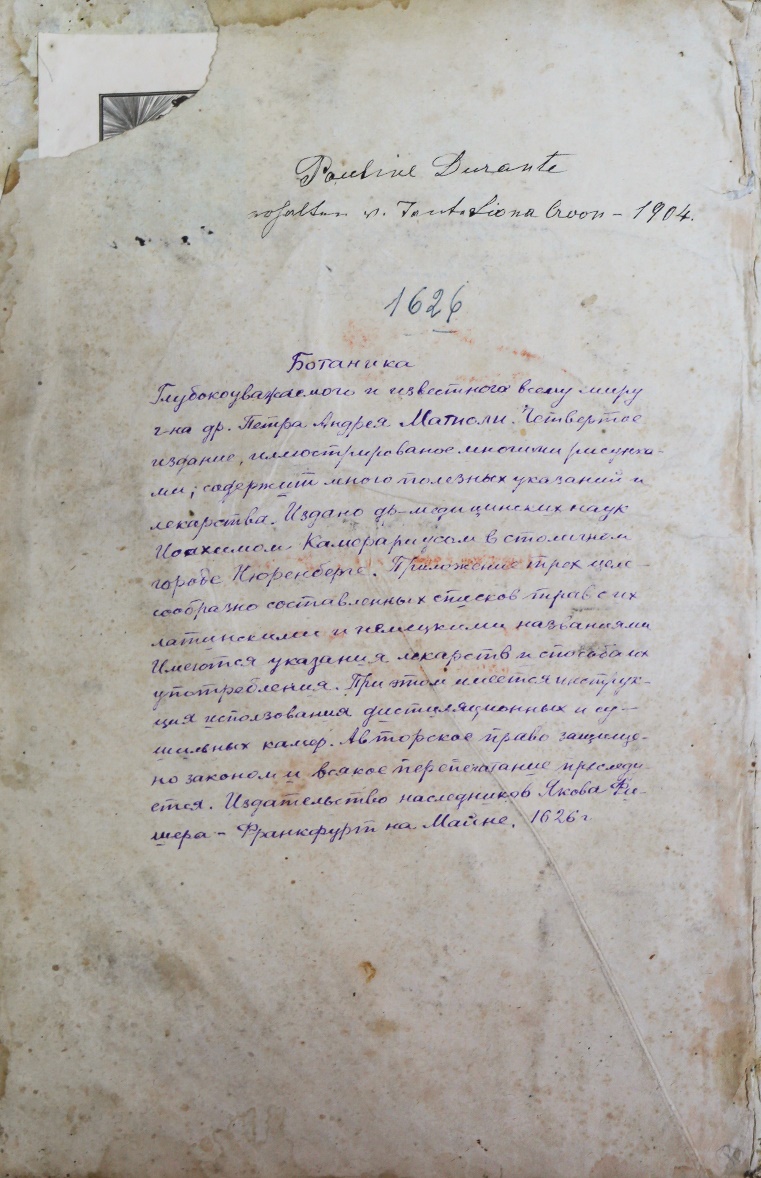 Pauline Durante
erhalten v. Tante Liona Croon - 1904.
1626
Ботаника
Глубокоуважаемого и известного всему миру
г-на др. Петра Андрея Матиоли. Четвертое
издание, иллюстрированое многими рисунка-
ми, содержит много полезных указаний и
лекарства. Издано др-медицинских наук
Иоахимом Камерариусом в столичном
городе Нюренберге. Приложение трех целе-
сообразно составленных списков трав с их
латинскими и немецкими названиями
Имеются указания лекарств и способа их
употребления. При этом имеется инструк-
ция использования дистиляционных и су-
шильных камер. Авторское право защище-
но законом и всякое перепечатание преследу
ется. Издательство наследников Якова Фи-
шера - Франкфурт на Майне. 1626 г